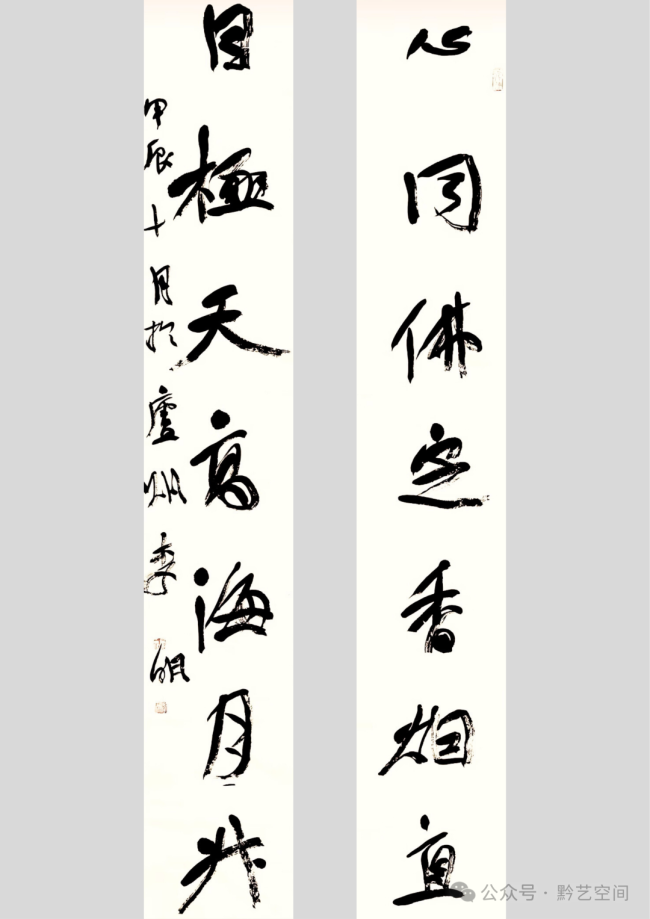 心同佛定香烟直
目極天高海月升
甲辰十月於廬州李明
公众号·黔艺空间